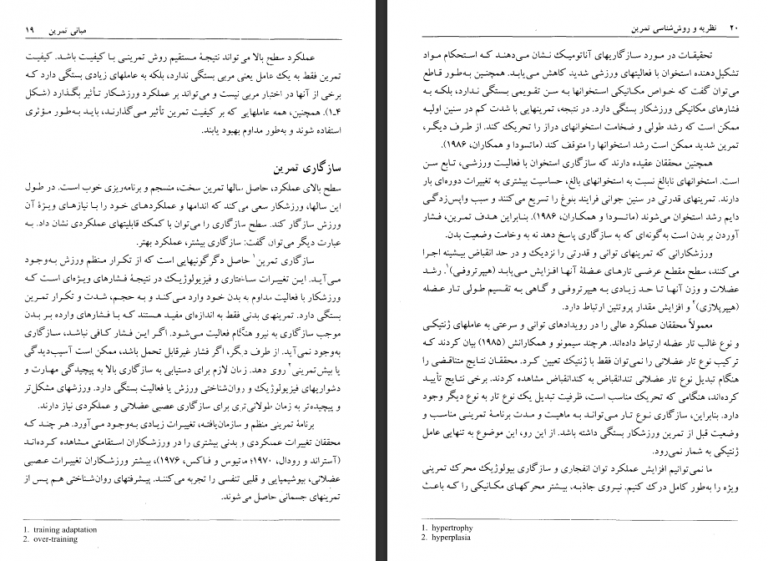 مبانی تمرین ۱۹
عملکرد سطح بالا می‌تواند نتیجهٔ مستقیم روش تمرینی با کیفیت باشد. کیفیت
تمرین فقط به یك عامل یعنی مربی بستگی ندارد، بلکه به عاملهای زیادی بستگی دارد که
برخی از آنها در اختیار مربی نیست و می‌تواند بر عملکرد ورزشکار تأثیر بگذارد (شکل
۴ـ۱). همچنین، همه عاملهایی که بر کیفیت تمرین تأثیر می‌گذارند، باید به‌طور مؤثری
استفاده شوند و به‌طور مداوم بهبود یابند.
سازگاری تمرین
سطح بالای عملکرد، حاصل سالها تمرین سخت، منسجم و برنامه‌ریزی خوب است. در طول
این سالها، ورزشکار سعی می‌کند که اندامها و عملکردهای خود را با نیازهای ویژهٔ آن
ورزش سازگار کند. سطح سازگاری را می‌توان با کمك قابلیتهای عملکردی نشان داد. به
عبارت دیگر می‌توان گفت: سازگاری بیشتر، عملکرد بهتر.
سازگاری تمرین۱ حاصل دگرگونیهایی است که از تکرار منظم ورزش به‌وجود
می‌آید. این تغییرات ساختاری و فیزیولوژیك در نتیجهٔ فشارهای ویژه‌ای است که
ورزشکار با فعالیت مداوم به بدن خود وارد می‌کند و به حجم، شدت و تکرار تمرین
بستگی دارد. تمرینهای بدنی فقط به اندازه‌ای مفید هستند که با فشارهای وارده بر بدن
موجب سازگاری به نیرو هنگام فعالیت می‌شود. اگر این فشار کافی نباشد، سازگاری
به‌وجود نمی‌آید. از طرف دیگر، اگر فشار غیرقابل تحمل باشد، ممکن است آسیب‌دیدگی
یا بیش‌تمرینی۲ روی دهد. زمان لازم برای دستیابی به سازگاری بالا به پیچیدگی مهارت و
دشواریهای فیزیولوژیك و روان‌شناختی ورزش یا فعالیت بستگی دارد. ورزشهای مشکل‌تر
و پیچیده‌تر به زمان طولانی‌تری برای سازگاری عصبی عضلانی و عملکردی نیاز دارند.
برنامهٔ تمرینی منظم و سازمان‌یافته، تغییرات زیادی به‌وجود می‌آورد. هر چند که
محققان تغییرات عمسکردی و بدنی بیشتری را در ورزشکاران استقامتی مشاهده کرده‌اند
(آستراند و رودال، ۱۹۷۰؛ ماتیوس و فاکس، ۱۹۷۶)، بیشتر ورزشکاران تغییرات عصبی
عضلانی، بیوشیمیایی و قلبی تنفسی را تجربه می‌کنند. پیشرفتهای روان‌شناختی هم پس از
تمرینهای جسمانی حاصل می‌شوند.
1. training adaptation
2. over-training
۲۰ نظریه و روش‌شناسی تمرین
تحقیقات در مورد سازگاریهای آناتومیك نشان می‌دهند که استحکام مواد
تشکیل‌دهنده استخوان با فعالیتهای ورزشی شدید کاهش می‌یابد. همچنین به‌طور قاطع
می‌توان گفت که خواص مکانیکی استخوانها به سن تقویمی بستگی ندارد، بلکه به
فشارهای مکانیکی ورزشکار بستگی دارد. در نتیجه، تمرینهایی با شدت کم در سنین اولیه
ممکن است که رشد طولی و ضخامت استخوانهای دراز را تحریك کند. از طرف دیگر،
تمرین شدید ممکن است رشد استخوانها را متوقف کند (ماتسودا و همکاران، ۱۹۸۶).
همچنین محققان عقیده دارند که سازگاری استخوان با فعالیت ورزشی، تابع سن
است. استخوانهای نابالغ نسبت به استخوانهای بالغ، حساسیت بیشتری به تغییرات دوره‌ای بار
دارند. تمرینهای قدرتی در سنین جوانی فرایند بلوغ را تسریع می‌کنند و سبب واپس‌زدگی
دایم رشد استخوان می‌شوند (ماتسودا و همکاران، ۱۹۸۶). بنابراین هدف تمرین، فشار
آوردن بر بدن است به‌گونه‌ای که به سازگاری پاسخ دهد نه به وخامت وضعیت بدن.
ورزشکارانی که تمرینهای توانی و قدرتی را نزدیك و در حد انقباض بیشینه اجرا
می‌کنند، سطح مقطع عرضی تارهای عضلهٔ آنها افزایش می‌یابد (هیپرتروفی)۱. رشد
عضلات و وزن آنها تا حد زیادی به هیپرتروفی و گاهی به تقسیم طولی تار عضله
(هیپرپلازی)۲ و افزایش مقدار پروتئین ارتباط دارد.
معمولاً محققان عملکرد عالی را در رویدادهای توانی و سرعتی به عاملهای ژنتیکی
و نوع غالب تار عضله ارتباط داده‌اند. هرچند سیمونو و همکارانش (۱۹۸۵) بیان کردند که
ترکیب نوع تار عضلانی را نمی‌توان فقط با ژنتیك تعیین کرد. محققان نتایج متناقضی را
هنگام تبدیل نوع تار عضلانی تندانقباض به کندانقباض مشاهده کردند. برخی نتایج تأیید
کرده‌اند، هنگامی که تحریك مناسب است، ظرفیت تبدیل یك نوع تار به نوع دیگر وجود
دارد. بنابراین، سازگاری نوع تار می‌تواند به ماهیت و مدت برنامهٔ تمرینی مناسب و
وضعیت قبل از تمرین ورزشکار بستگی داشته باشد. از این رو، این موضوع به تنهایی عامل
ژنتیکی به شمار نمی‌رود.
ما نمی‌توانیم افزایش عملکرد توان انفجاری و سازگاری بیولوژیك محرك تمرینی
ویژه را به‌طور کامل درك کنیم. نیروی جاذبه، بیشتر محرکهای مکانیکی را که باعث
1. hypertrophy
2. hyperplasia